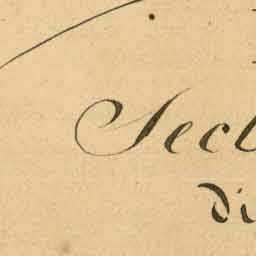 Sect
di